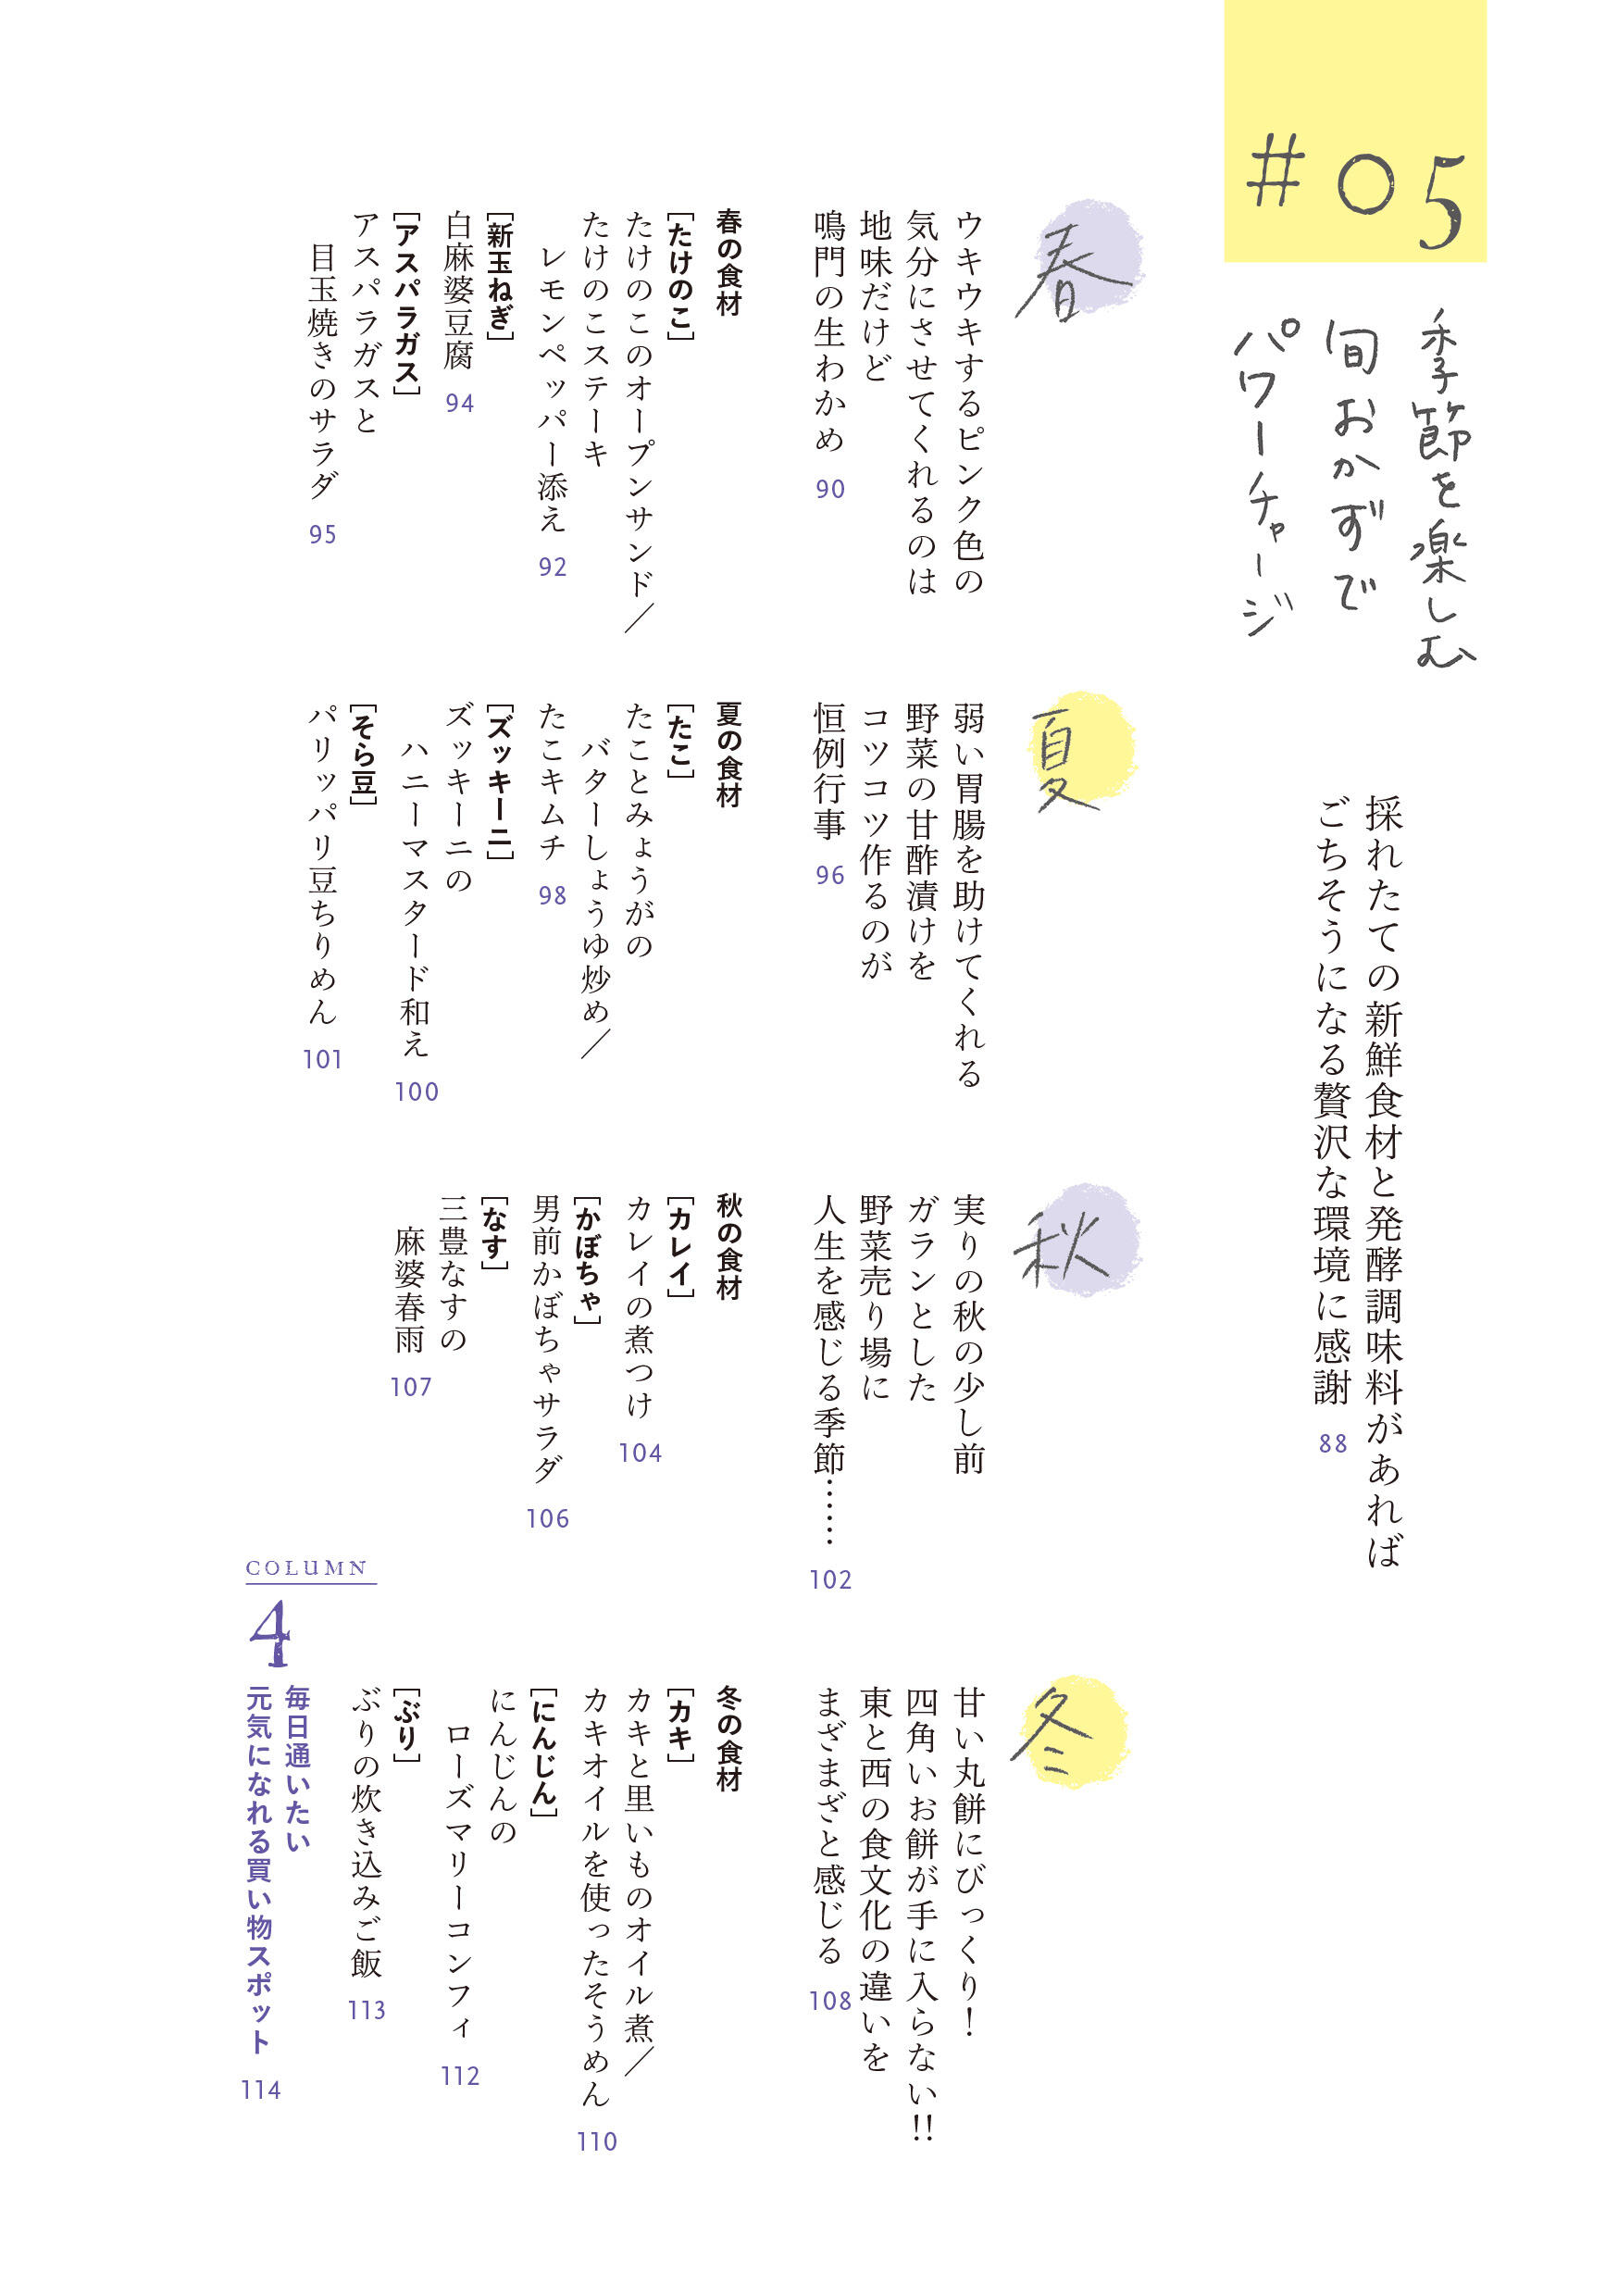 #05
季節を楽しむ
旬おかずで
パワーチャージ
採れたての新鮮食材と発酵調味料があれば
ごちそうになる贅沢な環境に感謝 88
春
ウキウキするピンク色の
気分にさせてくれるのは
地味だけど
鳴門の生わかめ 90
春の食材
[たけのこ]
たけのこのオープンサンド／
たけのこステーキ
レモンペッパー添え 92
[新玉ねぎ]
白麻婆豆腐 94
[アスパラガス]
アスパラガスと
目玉焼きのサラダ 95
夏
弱い胃腸を助けてくれる
野菜の甘酢漬けを
コツコツ作るのが
恒例行事 96
夏の食材
[たこ]
たことみょうがの
バターしょうゆ炒め／
たこキムチ 98
[ズッキーニ]
ズッキーニの
ハニーマスタード和え 100
[そら豆]
パリッパリ豆ちりめん 101
秋
実りの秋の少し前
ガランとした
野菜売り場に
人生を感じる季節…… 102
秋の食材
[カレイ]
カレイの煮つけ 104
[かぼちゃ]
男前かぼちゃサラダ 106
[なす]
三豊なすの
麻婆春雨 107
冬
甘い丸餅にびっくり！
四角いお餅が手に入らない!!
東と西の食文化の違いを
まざまざと感じる 108
冬の食材
[カキ]
カキと里いものオイル煮／
カキオイルを使ったそうめん 110
[にんじん]
にんじんの
ローズマリーコンフィ 112
[ぶり]
ぶりの炊き込みご飯 113
COLUMN
4
毎日通いたい
元気になれる買い物スポット 114